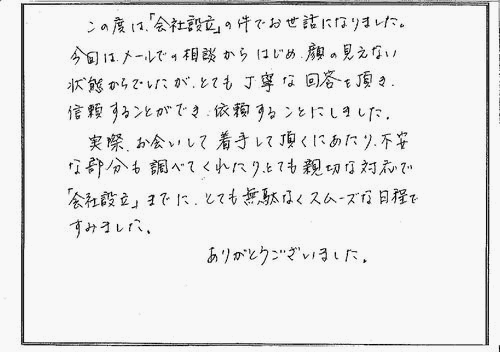 この度は、「会社設立」の件でお世話になりました。
今回は、メールでの相談からはじめ、顔の見えない
状態からでしたが、とても丁寧な回答を頂き、
信頼することができ、依頼することにしました。
実際、お会いして着手して頂くにあたり、不安
な部分も調べてくれたり、とても親切な対応で
「会社設立」までに、とても無駄なくスムーズな日程で
すみました。
ありがとうございました。